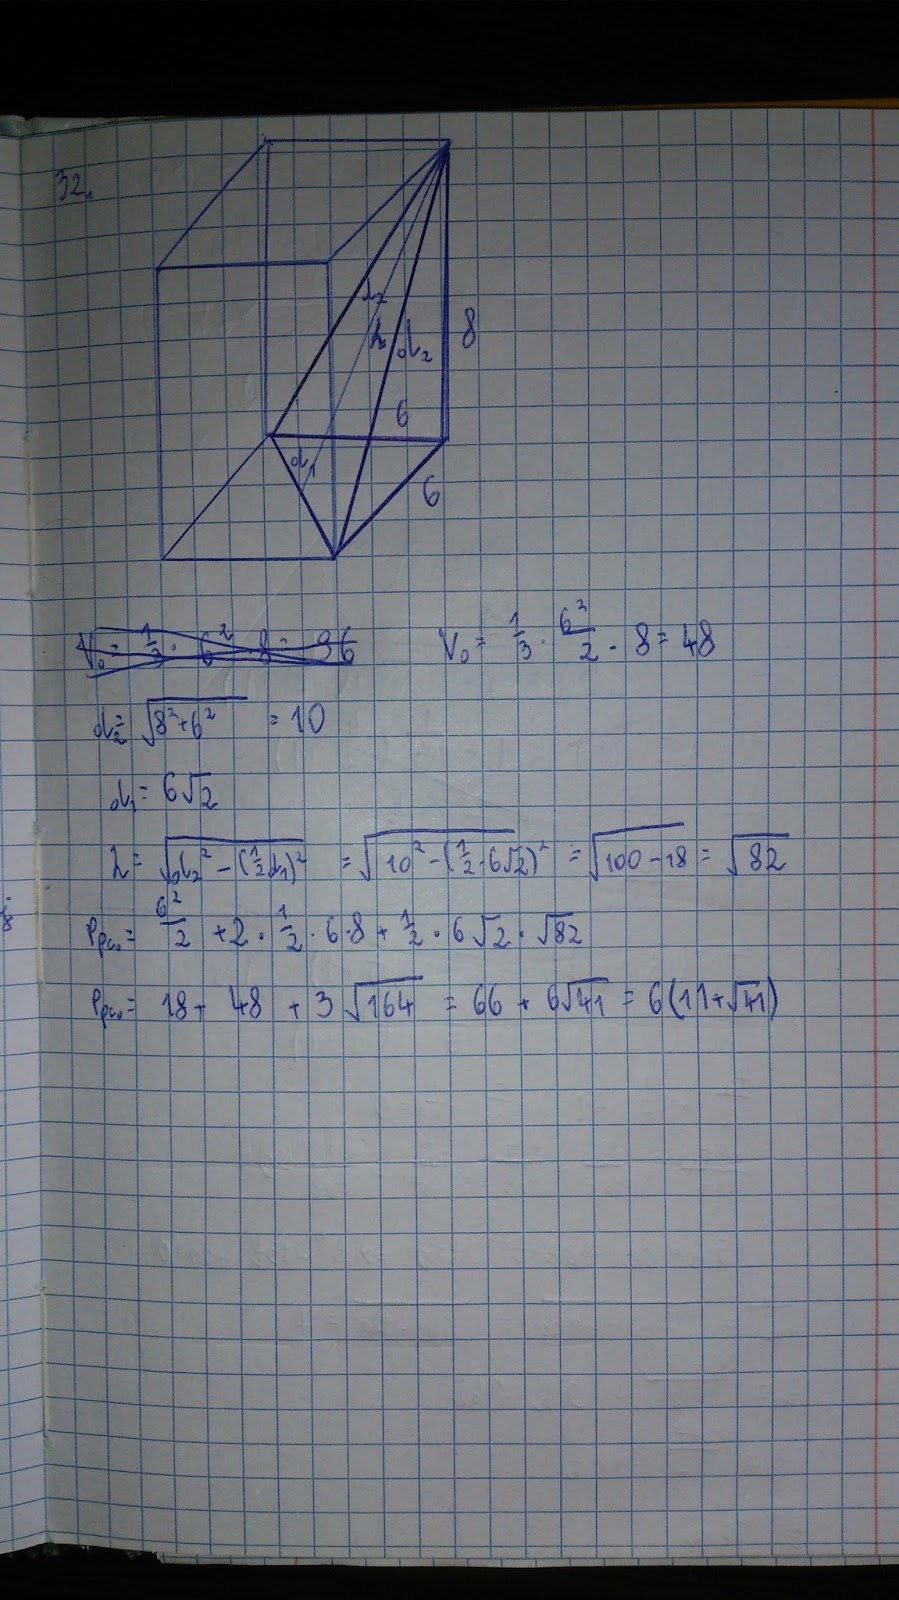 32.
d₂
h
d₂
8
6
d₁
6
V₀ = 1/3 · 6² · 8 = 96
V₀ = 1/3 · 6²/2 · 8 = 48
d₂ = √(8²+6²) = 10
d₁ = 6√2
h = √(d₂² - (1/2 d₁)²) = √(10² - (1/2·6√2)²) = √(100-18) = √82
Ppc₀ = 6²/2 + 2 · 1/2 · 6·8 + 1/2 · 6√2 · √82
Ppc₀ = 18 + 48 + 3√164 = 66 + 6√41 = 6(11+√41)